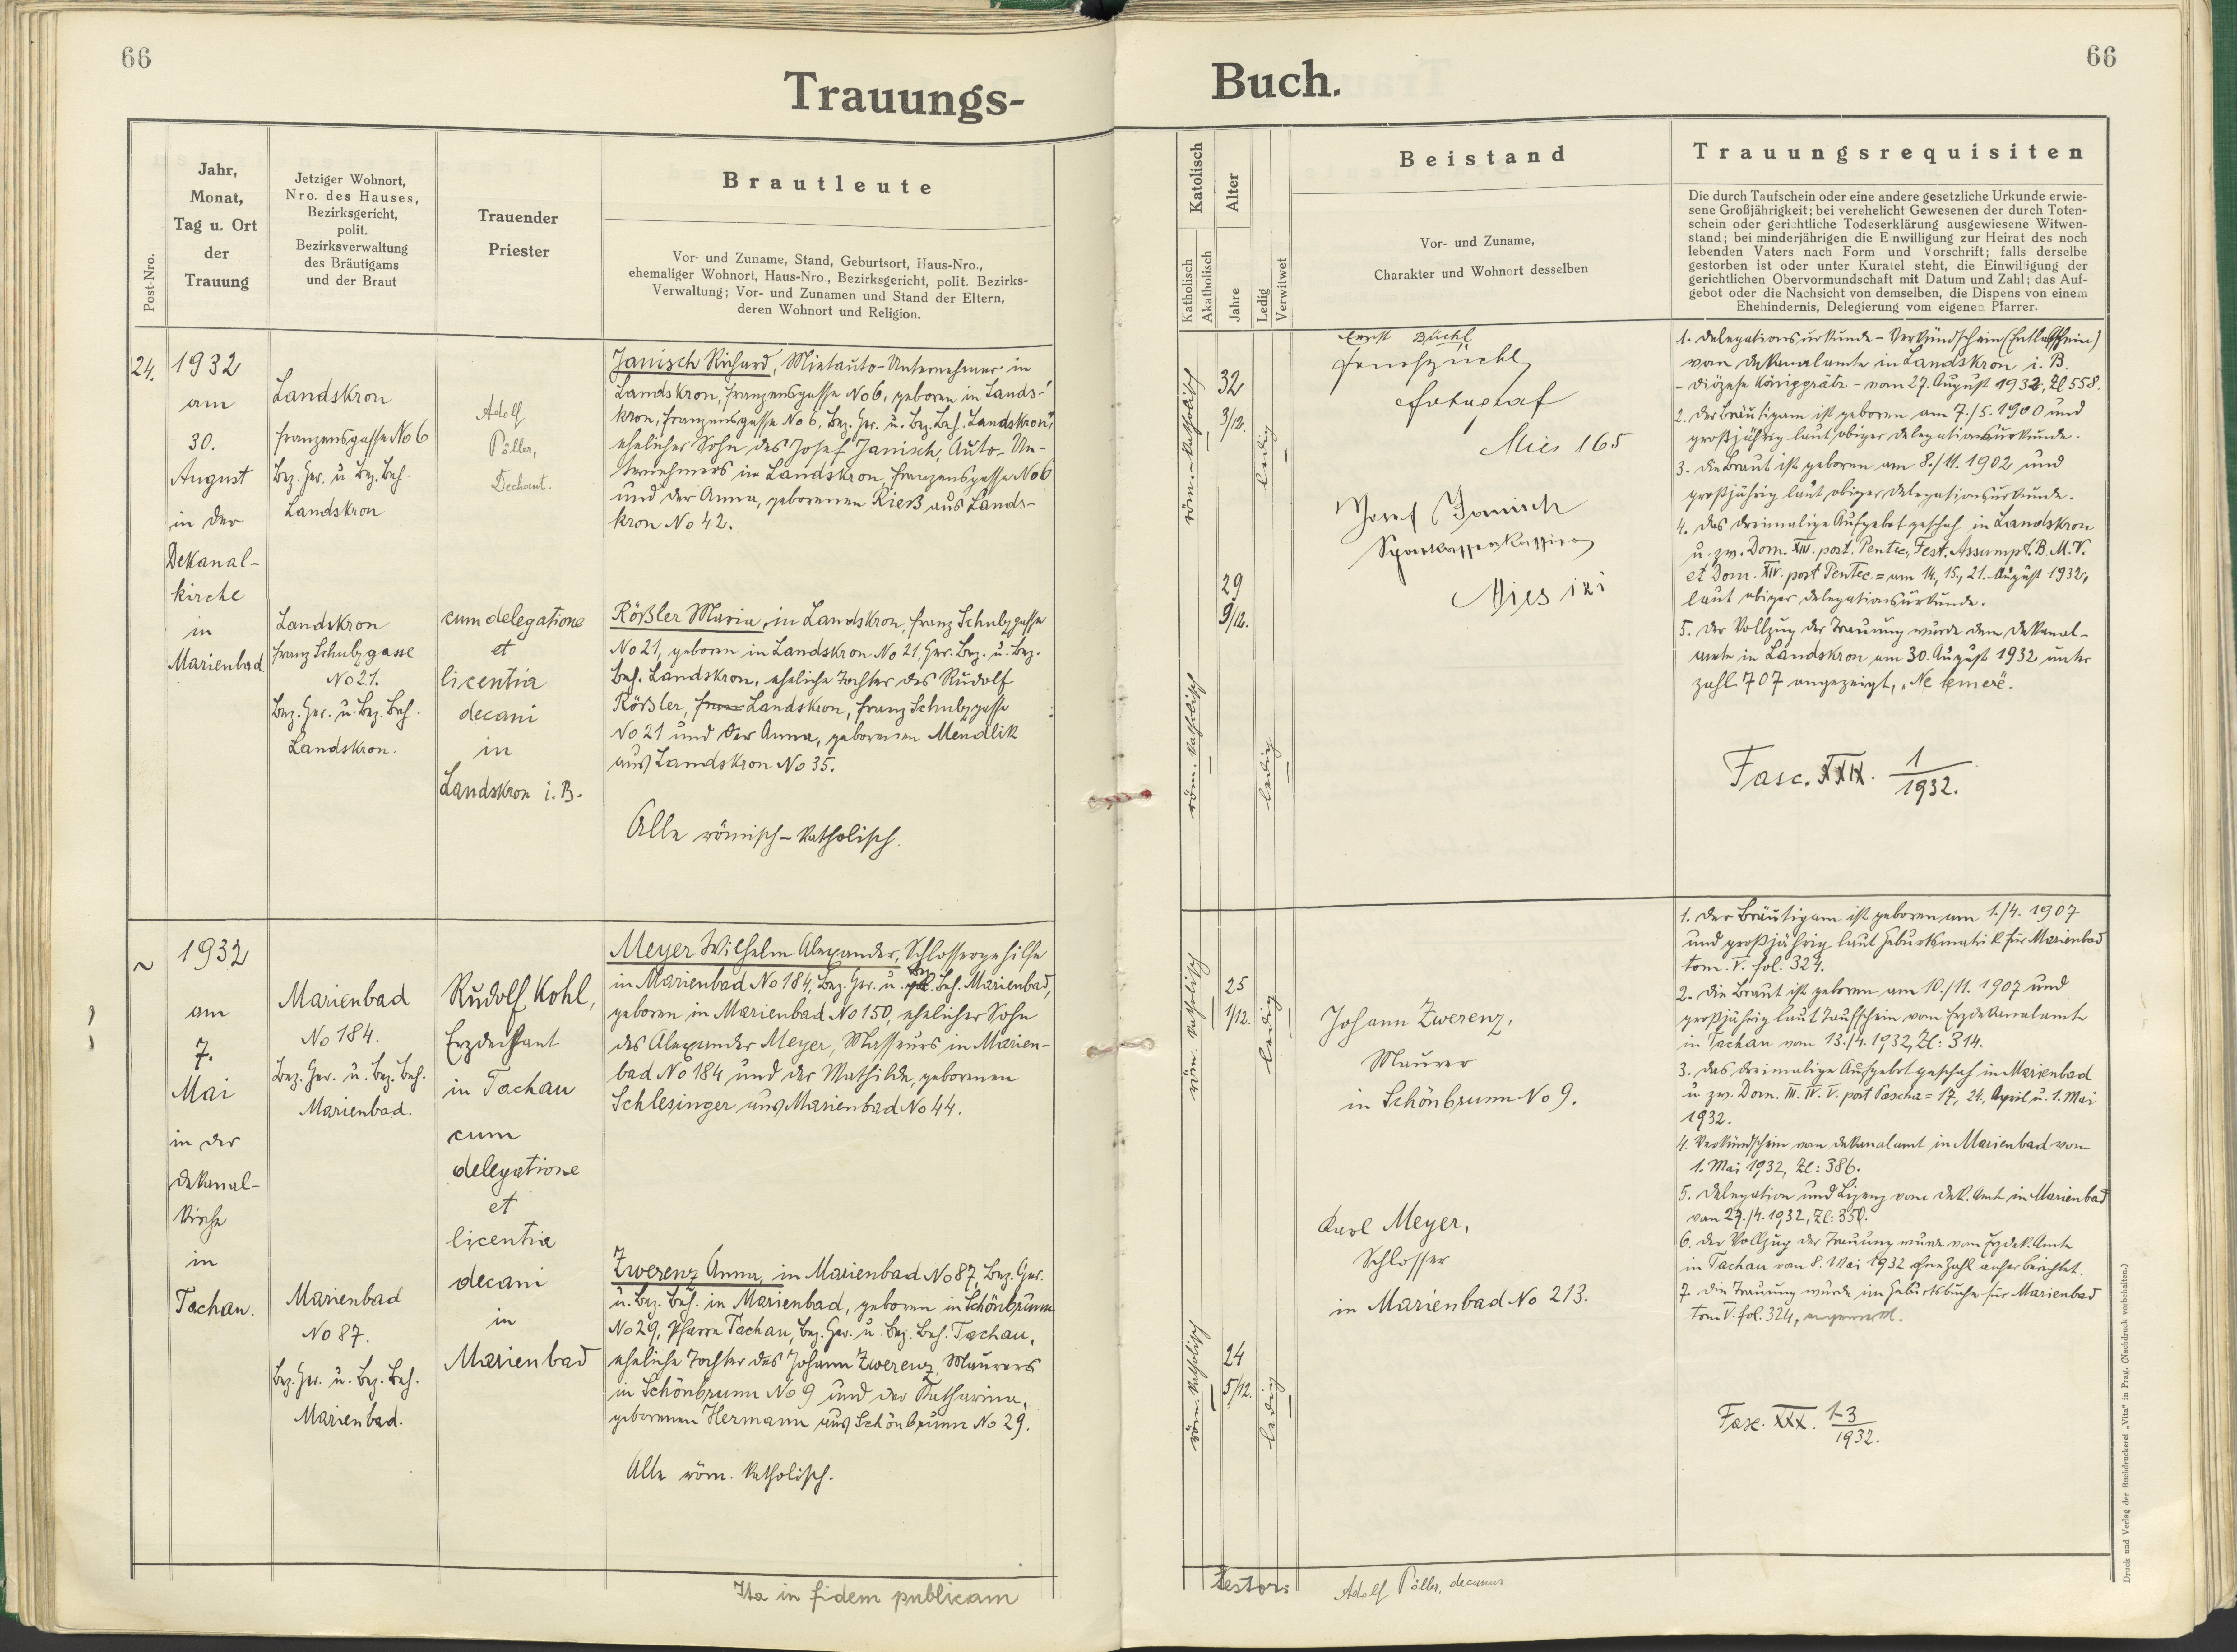 66
Trauungs-
Post-Nro.
Jahr,
Monat,
Tag u. Ort
der
Trauung
Jetziger Wohnort,
Nro. des Hauses,
Bezirksgericht,
polit.
Bezirksverwaltung
des Bräutigams
und der Braut
Trauender
Priester
Brautleute
Vor- und Zuname, Stand, Geburtsort, Haus-Nro.,
ehemaliger Wohnort, Haus-Nro., Bezirksgericht, polit. Bezirks-
Verwaltung; Vor- und Zunamen und Stand der Eltern,
deren Wohnort und Religion.
24.
1932
am
30.
August
in der
Dekanal-
kirche
in
Marienbad
Landskron
Franzensgasse No 6
Bez. Ger. u. Bez. Beh.
Landskron
Landskron
Franz Schulzgasse
No 21.
Bez. Ger. u. Bez. Beh.
Landskron.
Adolf
Pöller,
Dechant.
cum delegatione
et
licentia
decani
in
Landskron i. B.
Janisch Richard, Mietauto-Unternehmer in
Landskron, Franzensgasse No 6, geboren in Lands-
kron, Franzensgasse No 6, Bez. Ger. u. Bez. Beh. Landskron,
ehelicher Sohn des Josef Janisch, Auto-Un-
ternehmers in Landskron, Franzensgasse No 6
und der Anna, geborenen Rieß aus Lands-
kron No 42.
Rößler Maria, in Landskron, Franz Schulzgasse
No 21, geboren in Landskron No 21, Ger. Bez. u. Bez.
Beh. Landskron, eheliche Tochter des Rudolf
Rößler, Landskron, Franz Schulzgasse
No 21 und der Anna, geborenen Mendlik
aus Landskron No 35.
Alle römisch-katholisch.
~
1932
am
7.
Mai
in der
Dekanal-
kirche
in
Tachau.
Marienbad
No 184.
Bez. Ger. u. Bez. Beh.
Marienbad.
Marienbad
No 87.
Bez. Ger. u. Bez. Beh.
Marienbad.
Rudolf Kohl,
Erzdechant
in Tachau
cum
delegatione
et
licentia
decani
in
Marienbad
Meyer Wilhelm Alexander, Schlossergehilfe
in Marienbad No 184, Bez. Ger. u. Bez. Beh. Marienbad,
geboren in Marienbad No 150, ehelicher Sohn
des Alexander Meyer, Masseurs in Marien-
bad No 184 und der Mathilde, geborenen
Schlesinger aus Marienbad No 44.
Zwerenz Anna, in Marienbad No 87, Bez. Ger.
u. Bez. Beh. in Marienbad, geboren in Schönbrunn
No 29, Pfarre Tachau, Bez. Ger. u. Bez. Beh. Tachau,
eheliche Tochter des Johann Zwerenz, Maurers
in Schönbrunn No 9 und der Katharina,
geborenen Hermann aus Schönbrunn No 29.
Alle röm. katholisch.
Ita in fidem publicam
66
Buch.
Katolisch
Katholisch
Akatholisch
Alter
Jahre
Ledig
Verwitwet
Beistand
Vor- und Zuname,
Charakter und Wohnort desselben
Trauungsrequisiten
Die durch Taufschein oder eine andere gesetzliche Urkunde erwie-
sene Großjährigkeit; bei verehelicht Gewesenen der durch Toten-
schein oder gerichtliche Todeserklärung ausgewiesene Witwen-
stand; bei minderjährigen die Einwilligung zur Heirat des noch
lebenden Vaters nach Form und Vorschrift; falls derselbe
gestorben ist oder unter Kuratel steht, die Einwilligung der
gerichtlichen Obervormundschaft mit Datum und Zahl; das Auf-
gebot oder die Nachsicht von demselben, die Dispens von einem
Ehehindernis, Delegierung vom eigenen Pfarrer.
röm.-katholisch
32
3/12.
ledig
röm. katholisch
29
9/12.
ledig
Ernst Büchl
Ernst Büchl
Fotograf
Mies 165
Josef Janisch
Sparkassenkassier
Mies 121
1. Delegationsurkunde - Verkündschein (Entlaßschein)
vom Dekanalamte in Landskron i. B.
- Diözese Königgrätz - vom 27. August 1932, Zl 558.
2. Der Bräutigam ist geboren am 7./5. 1900 und
großjährig laut obiger Delegationsurkunde.
3. Die Braut ist geboren am 8./11. 1902 und
großjährig laut obiger Delegationsurkunde.
4. Das dreimalige Aufgebot geschah in Landskron
u. zw. Dom. XIII. post. Pentec, Fest. Assumpt. B. M. V.
et Dom. XIV. post Pentec. = am 14., 15., 21. August 1932,
laut obiger Delegationsurkunde.
5. Der Vollzug der Trauung wurde dem Dekanal-
amte in Landskron am 30. August 1932 unter
Zahl 707 angezeigt, „Ne temere".
Fasc. XXIX. 1/1932.
röm. katholisch
25
1/12.
ledig
röm. katholisch
24
5/12.
ledig
Johann Zwerenz,
Maurer
in Schönbrunn No 9.
Karl Meyer,
Schlosser
in Marienbad No 213.
1. Der Bräutigam ist geboren am 1./4. 1907
und großjährig laut Geburtsmatrik für Marienbad
tom. V. fol. 324.
2. Die Braut ist geboren am 10./11. 1907 und
großjährig laut Taufschein vom Erzdekanalamte
in Tachau vom 13./4. 1932, Zl: 314.
3. Das dreimalige Aufgebot geschah in Marienbad
u zw. Dom. III. IV. V. post Pascha = 17., 24. April u. 1. Mai
1932.
4. Verkündschein vom Dekanalamt in Marienbad vom
1. Mai 1932, Zl: 386.
5. Delegation und Lizenz vom Dek. Amt in Marienbad
von 27./4. 1932, Zl: 350.
6. Der Vollzug der Trauung wurde vom Erzdek. Amte
in Tachau vom 8. Mai 1932 ohne Zahl anher berichtet.
7. Die Trauung wurde im Geburtsbuche für Marienbad
tom V. fol. 324, angemerkt.
Fasc. XXX. 1-3/1932.
testor:
Adolf Pöller, decanus
Druck und Verlag der Buchdruckerei „Vita" in Prag. (Nachdruck vorbehalten.)